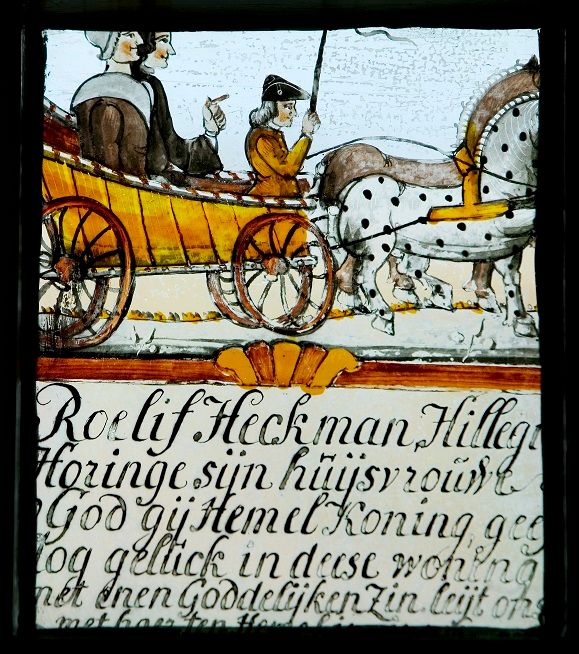 Roelif Heckman, Hilleg
Horinge sijn huijsvrouwe
God gij Hemel Koning, gee
og geluck in deese woning
met enen Goddelijken Zin leijt ons
met haer ten Heme